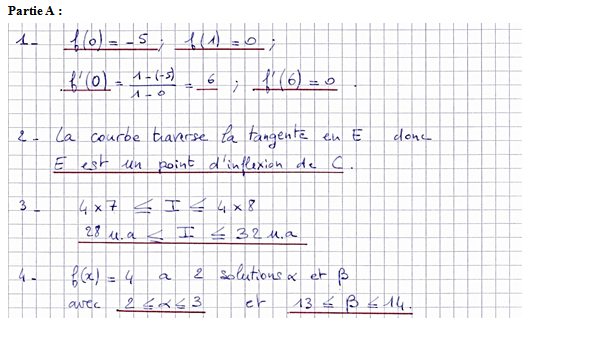 Partie A :
1- f(0) = -5 ; f(1) = 0 ;
f'(0) = 1-(-5)/1-0 = 6 ; f'(6) = 0 .
2 - La courbe traverse la tangente en E donc
E est un point d'inflexion de C.
3 - 4 x 7 ≤ I ≤ 4 x 8
28 u.a ≤ I ≤ 32 u.a
4 - f(x) = 4 a 2 solutions α et β
avec 2 ≤ α ≤ 3 et 13 ≤ β ≤ 14.